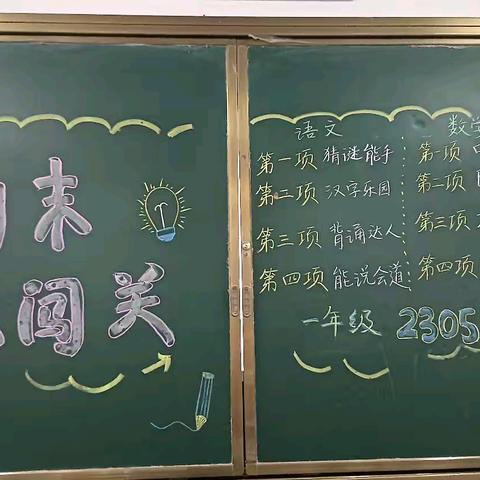 末
闯关
语文
数学
第一项 猜谜能手
第一项
第二项 汉字乐园
第二项
第三项 背诵达人
第三项
第四项 能说会道
第四项
一年级 2305